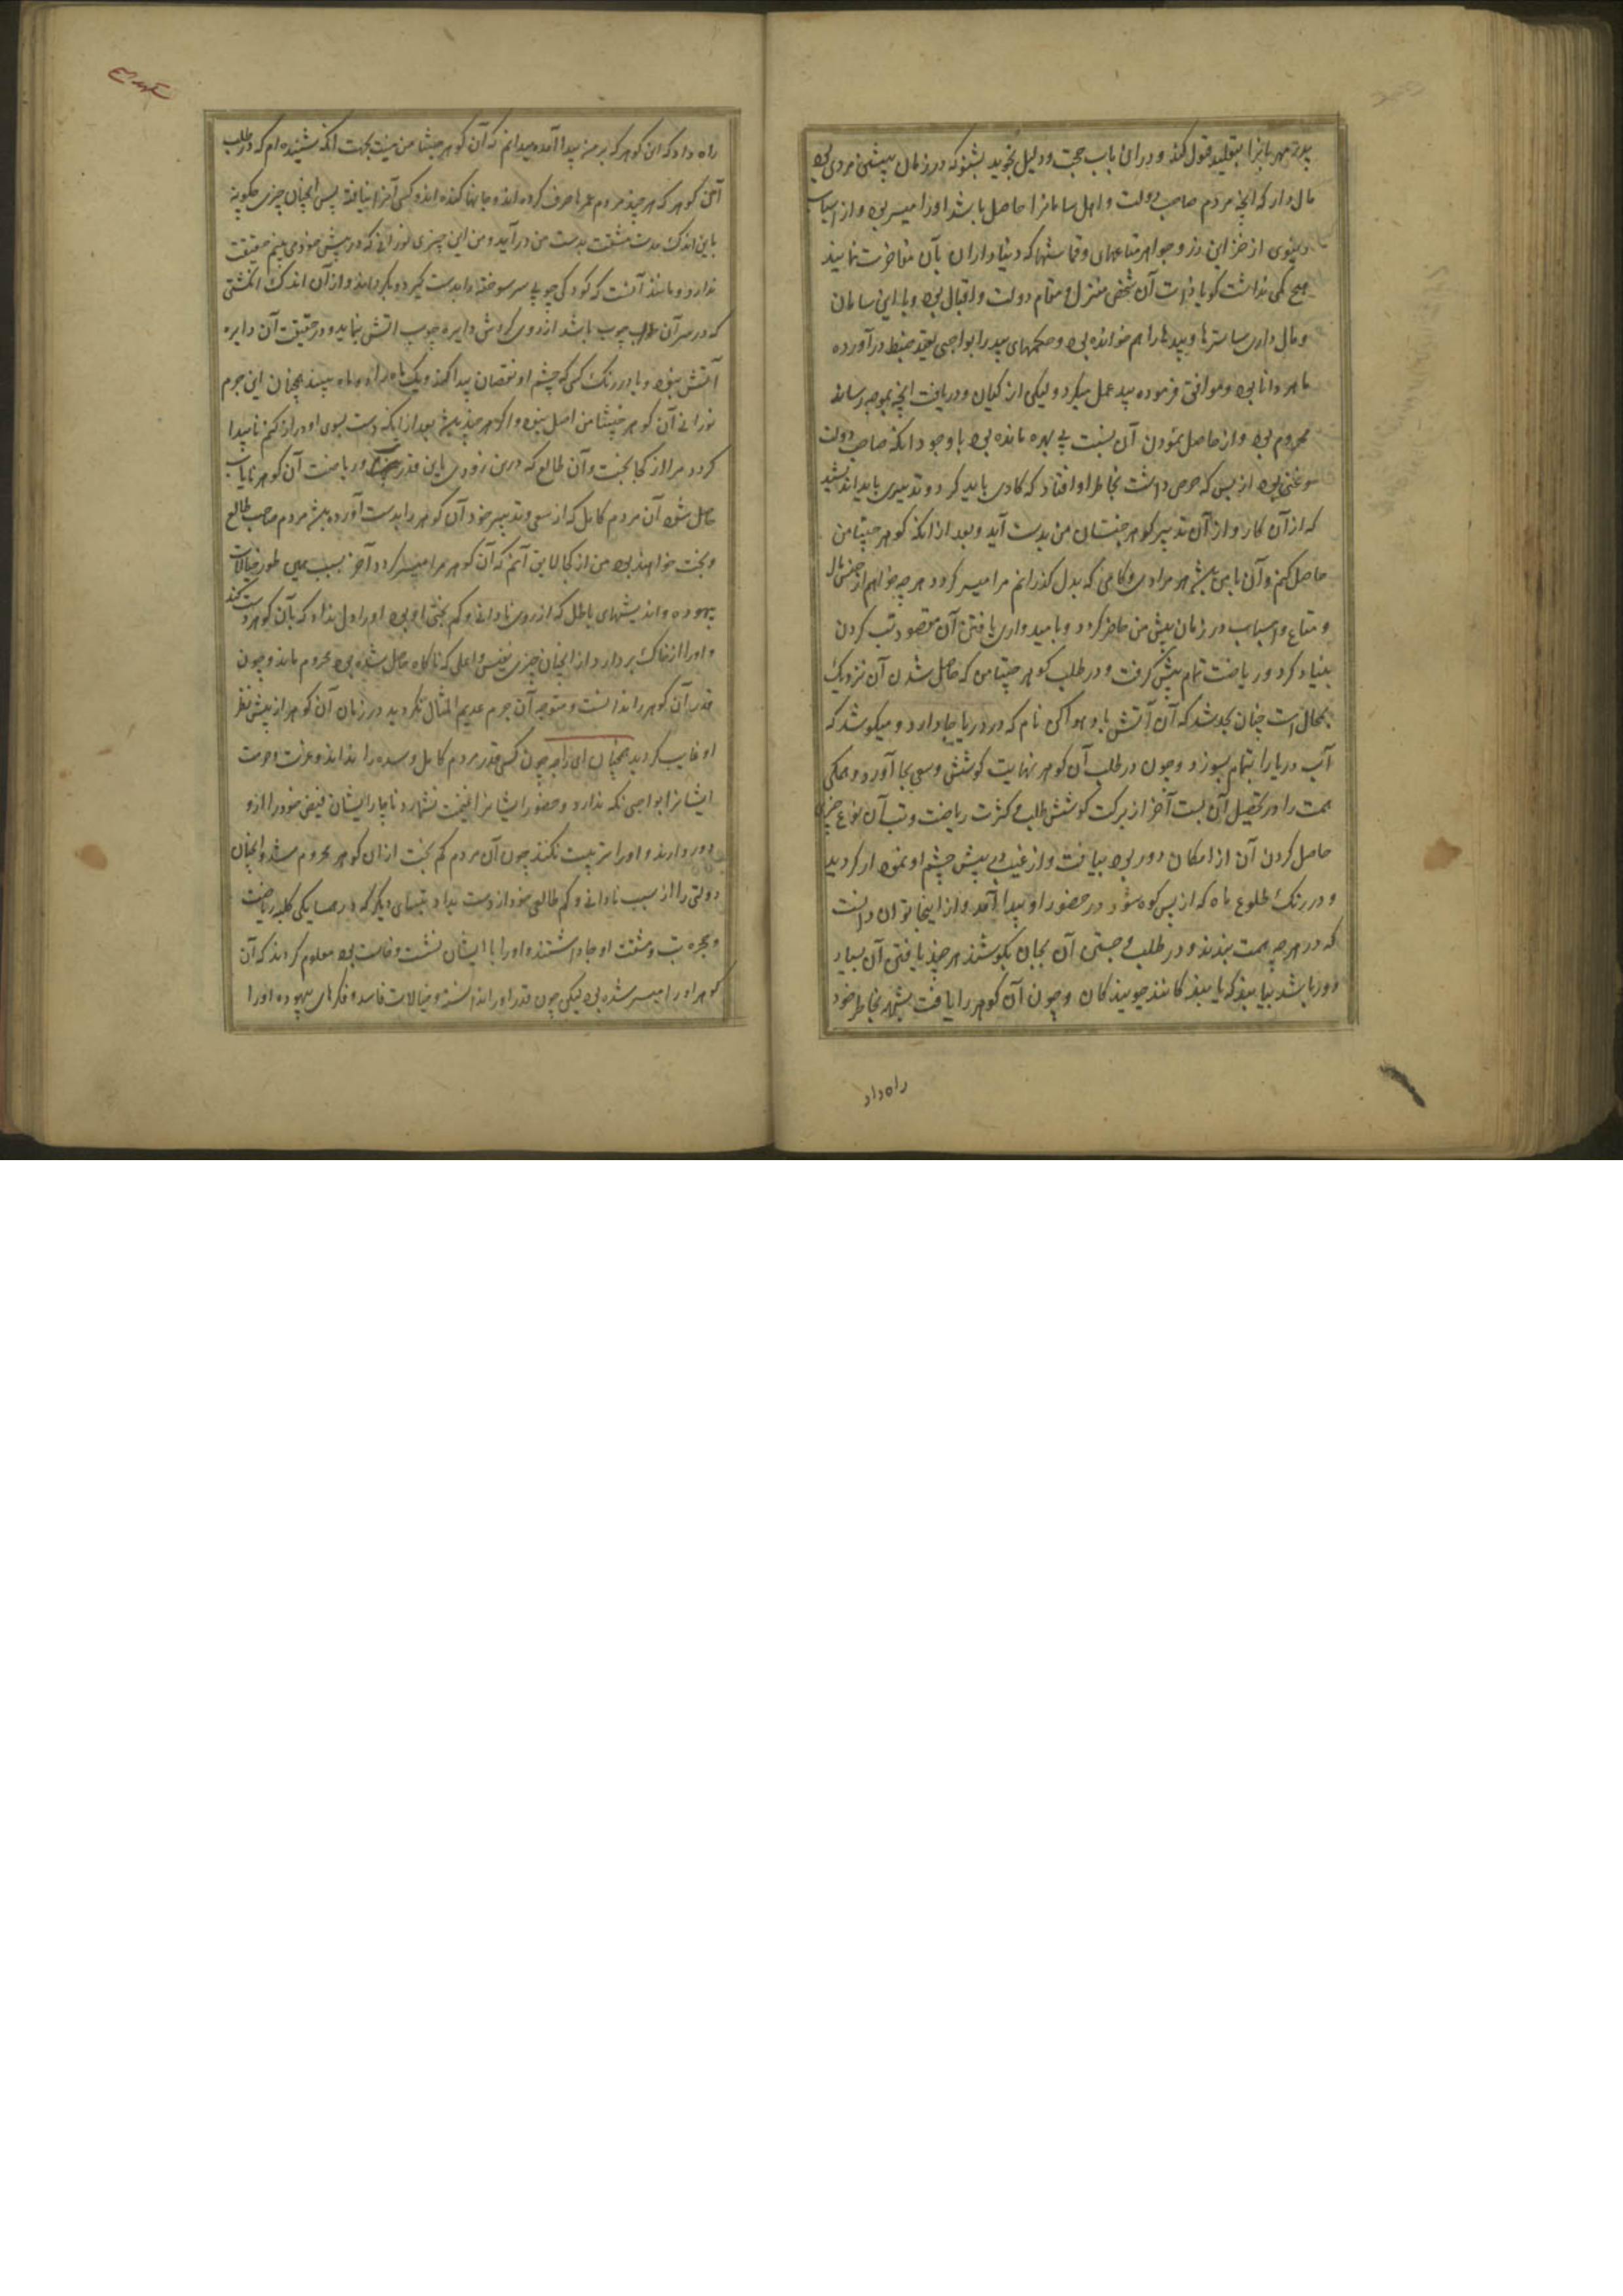 پدر مهربانرا بتقلید قبول کند و در ان باب حجت و دلیل نجوید بشنو که در زمان پیشین مردی بود
مال دار که آنچه مردم صاحب دولت و اهل سامانرا حاصل باشد اورا میسر بود و از اسباب
دنیوی از خزاین و زر و جواهر و متاعهای و قماشها که دنیاداران بآن مفاخرت نمایند
هیچ کمی نداشت گویا ذات آن شخص منزل و مقام دولت و اقبال بود و با این سامان
و مال داری شاسترها و بیدها را هم خوانده بود و حکمهای بید را بواجبی بقید ضبط درآورده
ماهر و دانا بود و موافق فرموده بید عمل میکرد و لیکن از گیان و دریافت آنچه بموجه رساند
محروم بود و از حاصل نمودن آن نسبت بی بهره مانده بود با وجود آنکه صاحب دولت
و غنی بود از بس که حرص داشت بخاطر او افتاد که کاری باید کرد و تدبیری باید اندیشید
که از آن کار و از آن تدبیر گوهر چنتامن بدست آید و بعد از آنکه گوهر چنتامن
حاصل کنم و آن با من باشد هر مرادی و کامی که بدل گذرانم مرا میسر گردد هر چه خواهم از جنس مال
و متاع و اسباب در زمان پیش من حاضر گردد و بامیدواری یافتن آن مقصود تپ کردن
بنیاد کرد و ریاضت تمام پیش گرفت و در طلب گوهر چنتامن که حاصل شدن آن نزدیک
بمحال است چنان بجد شد که آن آتش باد هواکن نام که در دریا جا دارد و میکوشد که
آب دریا را بتمام بسوزد و چون در طلب آن گوهر نهایت کوشش و سعی بجا آورد و همگی
همت را در تحصیل آن بست آخر از برکت کوشش طلب و کثرت ریاضت و تپ آن نوع چیزی
حاصل کردن آن از امکان دور بود بیافت و از غیب بی پیش چشم او نمودار گردید
و در رنگ طلوع ماه که از پس کوه شود در حضور او پیدا آمد و از اینجا توان دانست
که در هر چه همت بندند و در طلب و جستن آن بجان بکوشند هر چند یافتن آن بسیار
دور باشد بیابند که یابنده کانند جوینده کان و چون آن گوهر را یافت بشبهه بخاطر خود
راه داد
راه داد که این گوهر که بر من پیدا آمده میدانم که آن گوهر چنتامن نیست بجهت آنکه شنیده ام که در طلب
آن گوهر که هر چند مردم عمرها صرف کرده اند و جانها کنده اند و کسی آنرا نیافته پس آنچنان چیزی چگونه
باین اندک مدت مشقت بدست من درآید و من این چیزی نورانی که در پیش خود می بینم حقیقت
ندارد و مانند آنست که کودکی چوبی سر سوخته را بدست گیرد و بگرداند و از آن اندک انگشتی
که در سر آن چوب باشد از روی گردش دایره چوب آتش بنماید و در حقیقت آن دایره
آتش نبود و یا در رنگ کسی که چشم او نقصان پیدا کند و یک ماه را دو ماه بیند همچنان این جرم
نورانی آن گوهر چنتامن اصل نبود و اگر هر چند بیند بعد از آنکه دست بسوی او دراز کنم ناپیدا
گردد مرا از کجا بخت و آن طالع که درین زودی باین قدر و ریاضت آن گوهر نایاب
حاصل شود آن مردم کامل که از سعی و تدبیر خود آن گوهر را بدست آورده باشند مردم صاحب طالع
و بخت خواهند بود من از کجا لایق آنم که آن گوهر مرا میسر گردد آخر بسبب همین طور خیالات
بیهوده و اندیشهای باطل که از روی نادانی و کم بختی او بود اورا دل نداد که بآن گوهر دست کند
و اورا از خاک بردارد از آنچنان چیزی نفیس و اعلی که ناگاه حاصل شده بود محروم ماند و چون
قدر آن گوهر را ندانست و متوجه آن جرم عدیم المثال نگردید در زمان آن گوهر از پیش نظر
او غایب گردید همچنان ای راجه چون کسی قدر مردم کامل و رسیده را نداند و عزت و حرمت
ایشانرا بواجبی نگه ندارد و حضور ایشانرا غنیمت نشمارد ناچار ایشان فیض خود را ازو
دور دارند و اورا تربیت نکنند چون آن مردم کم بخت از آن گوهر محروم شد و آنچنان
دولتی را از سبب نادانی و کم طالعی خود از دست بداد
و حجره تپ و مشقت او جا داشتند و اورا با ایشان نشست و خاست بود معلوم کردند که آن
گوهر اورا میسر شده بود لیکن چون قدر اورا ندانسته و خیالات فاسد و فکرهای بیهوده اورا